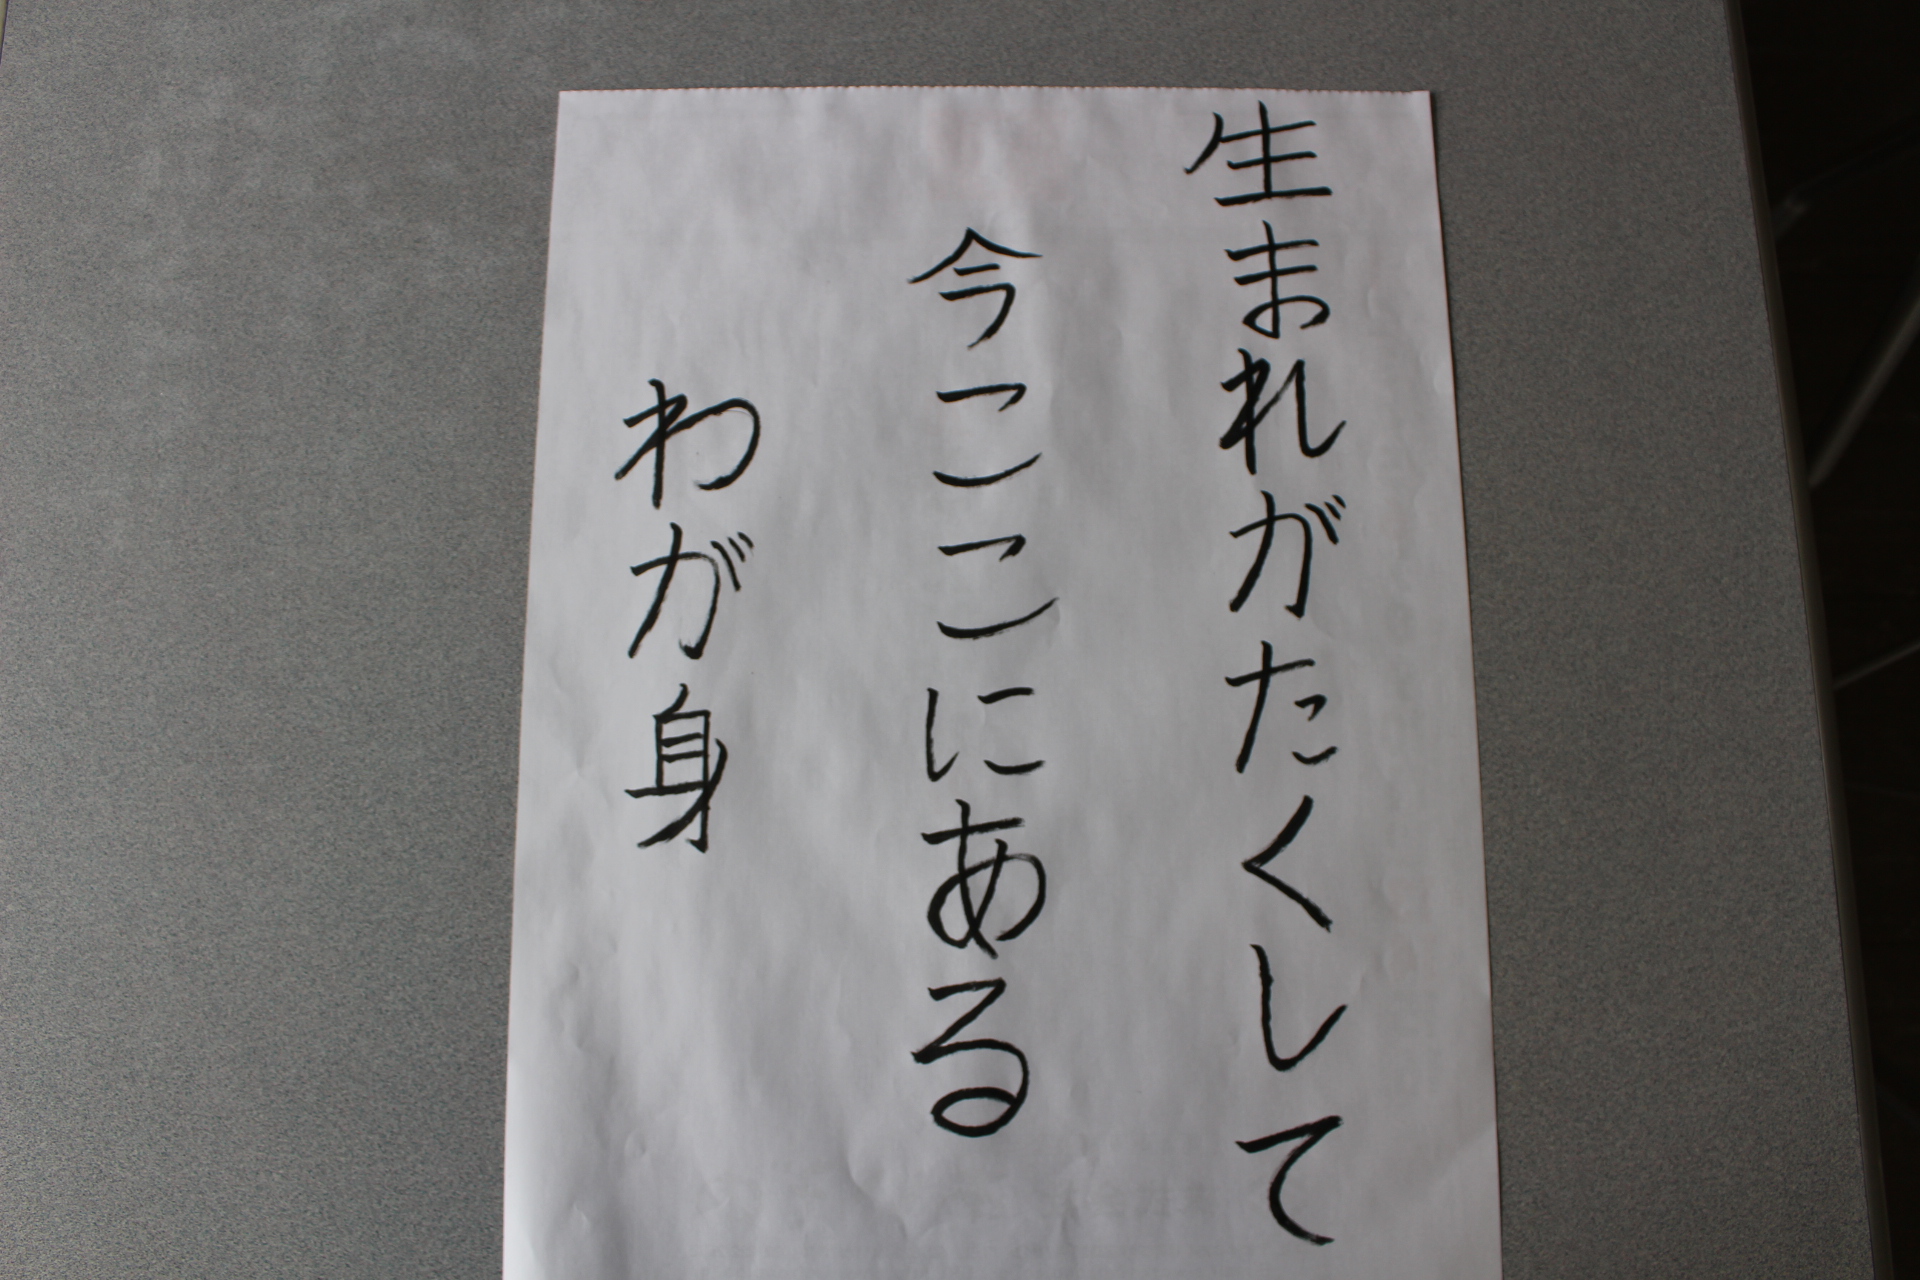 生まれがたくして
今ここにある
わが身